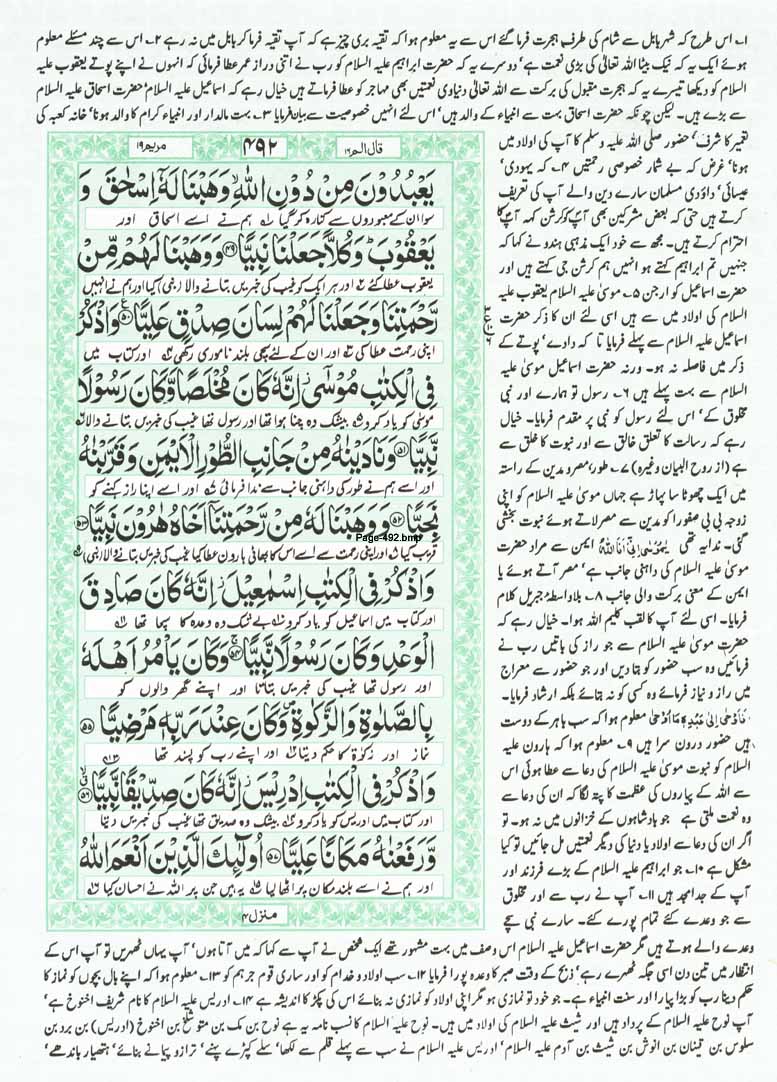 ۱۔ اس طرح کہ شہر بابل سے شام کی طرف ہجرت فرما گئے اس سے یہ معلوم ہوا کہ تقیہ بری چیز ہے کہ آپ تقیہ فرما کر بابل میں نہ رہے ۲۔ اس سے چند مسئلے معلوم
ہوئے ایک یہ کہ نیک بیٹا اللہ تعالٰی کی بڑی نعمت ہے‘ دوسرے یہ کہ حضرت ابراہیم علیہ السلام کو رب نے اتنی دراز عمر عطا فرمائی کہ انہوں نے اپنے پوتے یعقوب علیہ
السلام کو دیکھا تیسرے یہ کہ ہجرت مقبول کی برکت سے اللہ تعالٰی دنیاوی نعمتیں بھی مہاجر کو عطا فرماتے ہیں خیال رہے کہ اسماعیل علیہ السلام‘ حضرت اسحاق علیہ السلام
سے بڑے ہیں۔ لیکن چونکہ حضرت اسحاق بہت سے انبیاء کے والد ہیں‘ اس لئے انہیں خصوصیت سے بیان فرمایا ۳۔ بہت مالدار اور انبیاء کرام کا والد ہونا‘ خانہ کعبہ کی
قال الم ۱۶
۴۹۲
مریم ۱۹
يَعْبُدُوْنَ مِنْ دُوْنِ اللّٰهِ وَهَبْنَا لَهٗٓ اِسْحٰقَ وَ
سوا ان کے معبودوں سے کنارہ کر گیا ہم نے اسے اسحاق اور
يَعْقُوْبَ وَكُلًّا جَعَلْنَا نَبِيًّا ۴۹ وَوَهَبْنَا لَهُمْ مِّنْ
یعقوب عطا کئے اور ہر ایک کو غیب کی خبریں بتانے والا (نبی) کیا اور ہم نے انہیں
رَّحْمَتِنَا وَجَعَلْنَا لَهُمْ لِسَانَ صِدْقٍ عَلِيًّا ۵۰ وَاذْكُرْ
اپنی رحمت عطا کی اور ان کے لئے سچی بلند ناموری رکھی اور کتاب میں
فِي الْكِتٰبِ مُوْسٰٓى اِنَّهٗ كَانَ مُخْلَصًا وَّكَانَ رَسُوْلًا
موسٰی کو یاد کرو بیشک وہ چنا ہوا تھا اور رسول تھا غیب کی خبریں بتانے والا
نَّبِيًّا ۵۱ وَنَادَيْنٰهُ مِنْ جَانِبِ الطُّوْرِ الْاَيْمَنِ وَقَرَّبْنٰهُ
اور اسے ہم نے طور کی داہنی جانب سے ندا فرمائی اور اسے اپنا راز کہنے کو
نَجِيًّا ۵۲ وَوَهَبْنَا لَهٗ مِنْ رَّحْمَتِنَآ اَخَاهُ هٰرُوْنَ نَبِيًّا ۵۳
Page-492.bmp
قریب کیا اور اپنی رحمت سے اسے اس کا بھائی ہارون عطا کیا غیب کی خبریں بتانے والا (نبی)
وَاذْكُرْ فِي الْكِتٰبِ اِسْمٰعِيْلَ اِنَّهٗ كَانَ صَادِقَ
اور کتاب میں اسماعیل کو یاد کرو بے شک وہ وعدہ کا سچا تھا
الْوَعْدِ وَكَانَ رَسُوْلًا نَّبِيًّا ۵۴ وَكَانَ يَاْمُرُ اَهْلَهٗ
اور رسول تھا غیب کی خبریں بتاتا اور اپنے گھر والوں کو
بِالصَّلٰوةِ وَالزَّكٰوةِ وَكَانَ عِنْدَ رَبِّهٖ مَرْضِيًّا ۵۵
نماز اور زکوٰۃ کا حکم دیتا اور اپنے رب کو پسند تھا
وَاذْكُرْ فِي الْكِتٰبِ اِدْرِيْسَ اِنَّهٗ كَانَ صِدِّيْقًا نَّبِيًّا ۵۶
اور کتاب میں ادریس کو یاد کرو بیشک وہ صدیق تھا غیب کی خبریں دیتا
وَّرَفَعْنٰهُ مَكَانًا عَلِيًّا ۵۷ اُولٰٓئِكَ الَّذِيْنَ اَنْعَمَ اللّٰهُ
اور ہم نے اسے بلند مکان پر اٹھا لیا یہ ہیں جن پر اللہ نے احسان کیا
منزل ۴
تعمیر کا شرف‘ حضور صلی اللہ علیہ وسلم کا آپ کی اولاد میں
ہونا‘ غرض کہ بے شمار خصوصی رحمتیں ۴۔ کہ یہودی‘
عیسائی‘ داؤدی مسلمان سارے دین والے آپ کی تعریف
کرتے ہیں حتیٰ کہ بعض مشرکین بھی آپ کو کرشن کہہ آپ کا
احترام کرتے ہیں۔ مجھ سے خود ایک مذہبی ہندو نے کہا کہ
جنہیں تم ابراہیم کہتے ہو انہیں ہم کرشن جی کہتے ہیں اور
حضرت اسماعیل کو ارجن ۵۔ موسیٰ علیہ السلام یعقوب علیہ
السلام کی اولاد میں سے ہیں اسی لئے ان کا ذکر حضرت
اسماعیل علیہ السلام سے پہلے فرمایا تا کہ دادے‘ پوتے کے
ذکر میں فاصلہ نہ ہو۔ ورنہ حضرت اسماعیل موسیٰ علیہ
السلام سے بہت پہلے ہیں ۶۔ رسول تو ہمارے اور نبی
مخلوق کے‘ اس لئے رسول کو نبی پر مقدم فرمایا۔ خیال
رہے کہ رسالت کا تعلق خالق سے اور نبوت کا خلق سے
ہے (از روح البیان وغیرہ) ۷۔ طور‘ مصر و مدین کے راستہ
میں ایک چھوٹا سا پہاڑ ہے جہاں موسیٰ علیہ السلام کو اپنی
زوجہ بی بی صفورا کو مدین سے مصر لاتے ہوئے نبوت بخشی
گئی۔ ندا یہ تھی يٰمُوْسٰى اِنِّيْ اَنَا اللّٰهُ ایمن سے مراد حضرت
موسیٰ علیہ السلام کی داہنی جانب ہے‘ مصر آتے ہوئے یا
ایمن کے معنی برکت والی جانب ۸۔ بلاواسطہ جبریل کلام
فرمایا۔ اسی لئے آپ کا لقب کلیم اللہ ہوا۔ خیال رہے کہ
حضرت موسیٰ علیہ السلام سے جو راز کی باتیں رب نے
فرمائیں وہ سب حضور کو بتا دیں اور جو حضور سے معراج
میں راز و نیاز فرمائے وہ کسی کو نہ بتائے بلکہ ارشاد فرمایا۔
فَاَوْحٰٓى اِلٰى عَبْدِهٖ مَآ اَوْحٰى معلوم ہوا کہ سب باہر کے دوست
ہیں حضور درون سرا ہیں ۹۔ معلوم ہوا کہ ہارون علیہ
السلام کو نبوت موسیٰ علیہ السلام کی دعا سے عطا ہوئی اس
سے اللہ کے پیاروں کی عظمت کا پتہ لگا کہ ان کی دعا سے
وہ نعمت ملتی ہے جو بادشاہوں کے خزانوں میں نہ ہو۔ تو
اگر ان کی دعا سے اولاد یا دنیا کی دیگر نعمتیں مل جائیں تو کیا
مشکل ہے ۱۰۔ جو ابراہیم علیہ السلام کے بڑے فرزند اور
آپ کے جد امجد ہیں ۱۱۔ آپ نے رب سے اور مخلوق
سے جو وعدے کئے تمام پورے کئے۔ سارے نبی سچے
وعدے والے ہوتے ہیں مگر حضرت اسماعیل علیہ السلام اس وصف میں بہت مشہور تھے ایک شخص نے آپ سے کہا کہ میں آتا ہوں‘ آپ یہاں ٹھہریں تو آپ اس کے
انتظار میں تین دن اسی جگہ ٹھہرے رہے‘ ذبح کے وقت صبر کا وعدہ پورا فرمایا ۱۲۔ سب اولاد و خدام کو اور ساری قوم جرہم کو ۱۳۔ معلوم ہوا کہ اپنے بال بچوں کو نماز کا
حکم دینا رب کو بڑا پیارا اور سنت انبیاء ہے۔ جو خود تو نمازی ہو مگر اپنی اولاد کو نمازی نہ بنائے اس کی پکڑ کا اندیشہ ہے ۱۴۔ ادریس علیہ السلام کا نام شریف اخنوخ ہے‘
آپ نوح علیہ السلام کے پردادا ہیں اور شیث علیہ السلام کی اولاد میں ہیں۔ نوح علیہ السلام کا نسب نامہ یہ ہے نوح بن لمک بن متوشلخ بن اخنوخ (ادریس) بن برد بن
سلوس بن قینان بن انوش بن شیث بن آدم علیہ السلام‘ ادریس علیہ السلام نے سب سے پہلے قلم سے لکھا‘ سلے کپڑے پہنے‘ ترازو پیمانے بنائے‘ ہتھیار باندھے‘